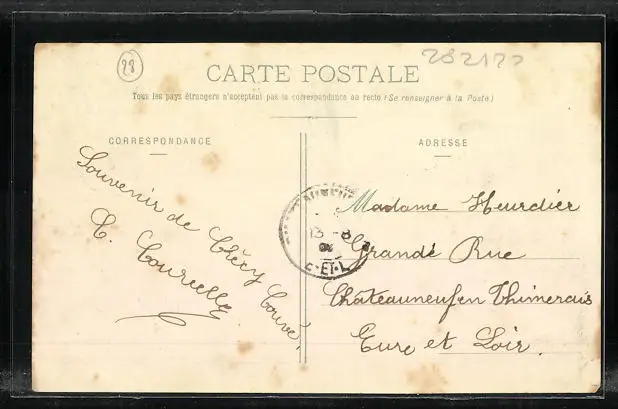 28
282177
CARTE POSTALE
Tous les pays étrangers n'acceptent pas la correspondance au recto (Se renseigner à la Poste)
CORRESPONDANCE
Souvenir de Crécy Couvé,
C. Courcelle
ADRESSE
13 -8
E-ET-L
Madame Heurdier
Grande Rue
Châteauneuf en Thimerais
Eure et Loir.